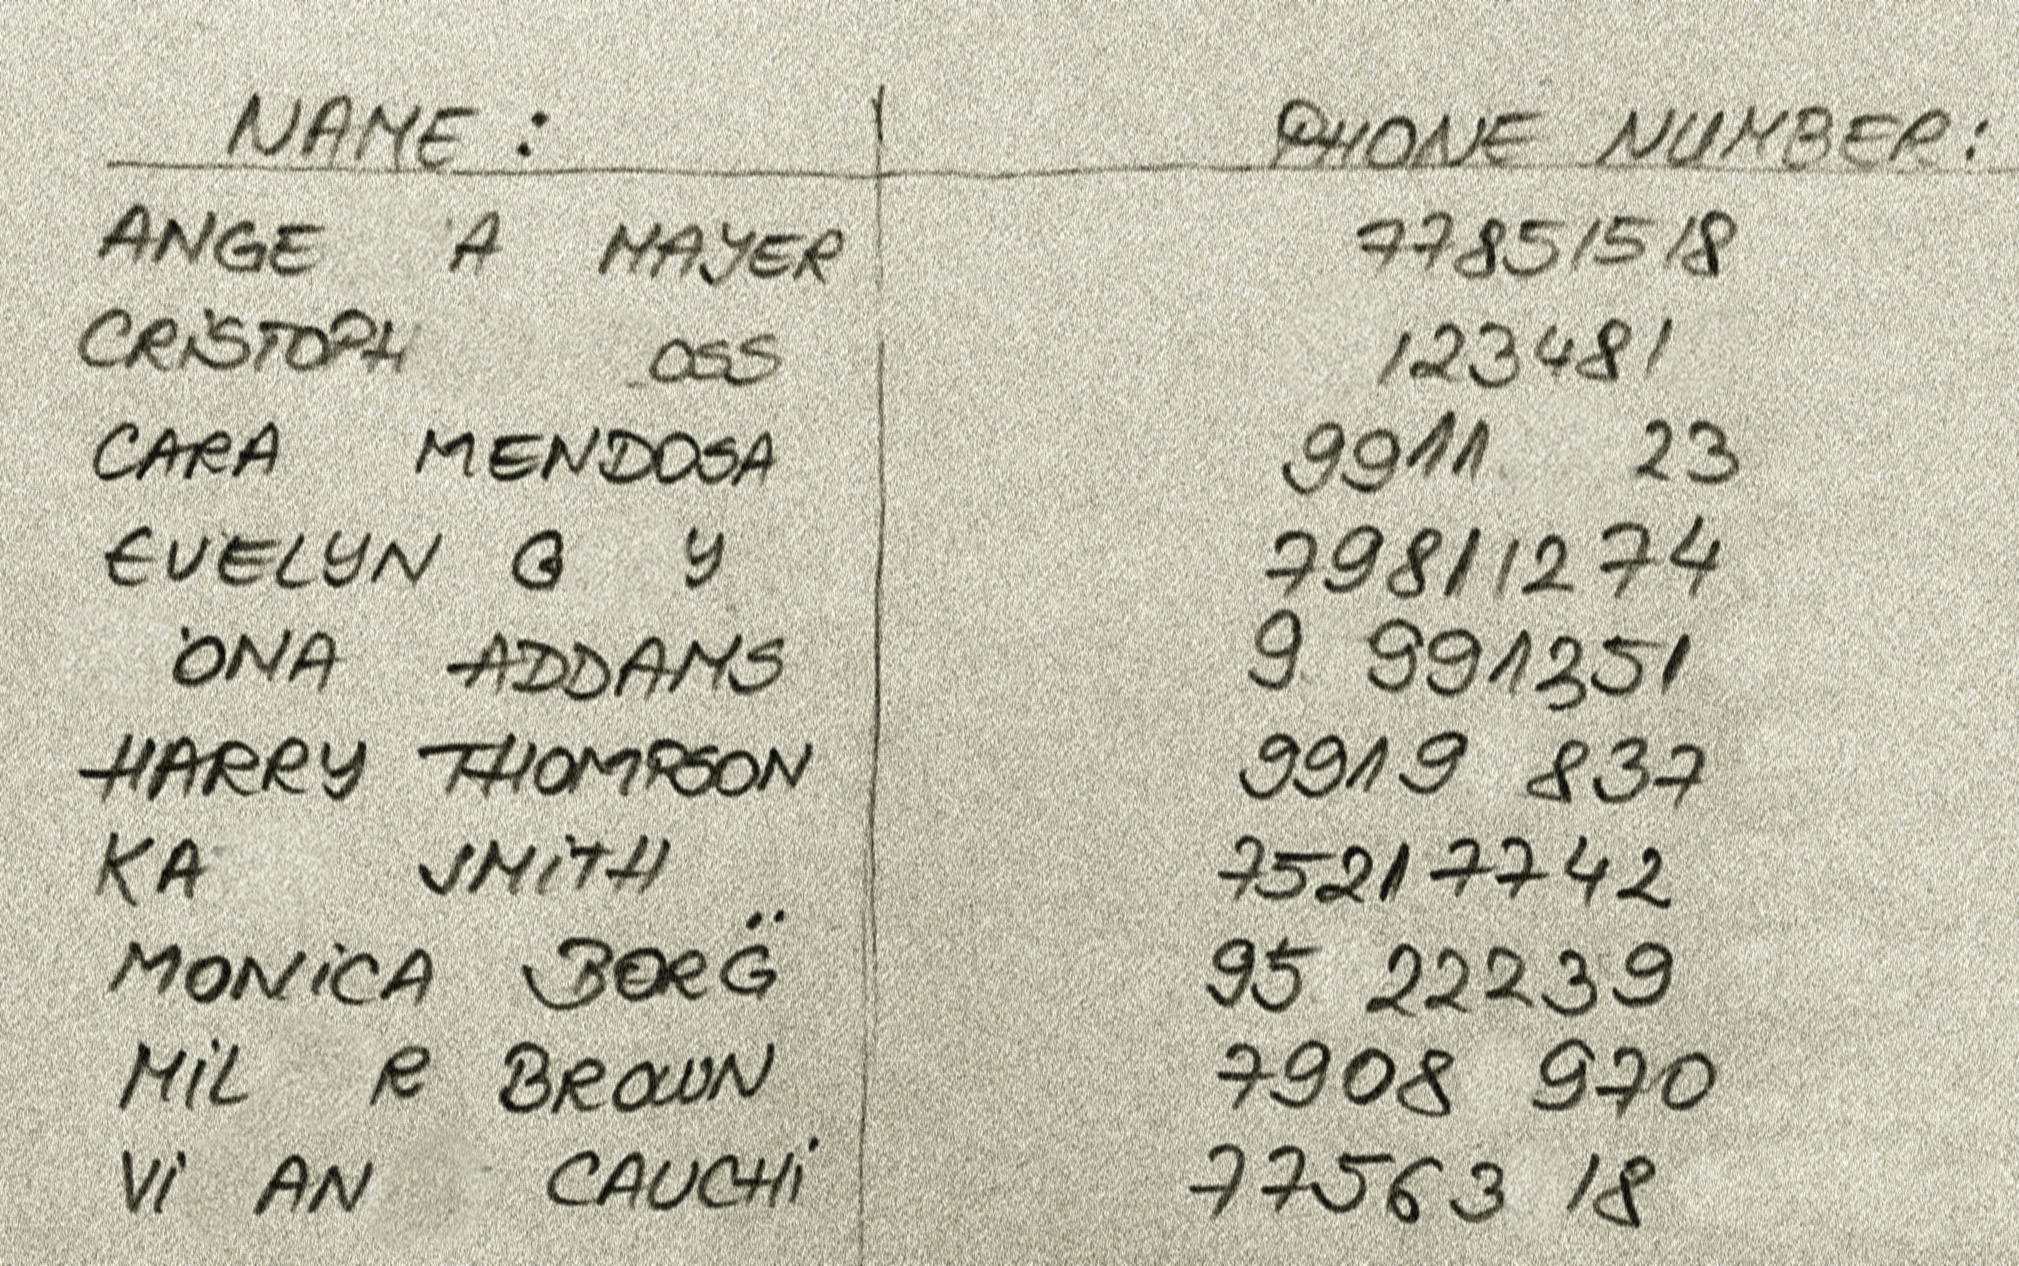 NAME : PHONE NUMBER:
ANGE A MAYER 77851518
CRISTOPH OSS 123481
CARA MENDOSA 9911 23
EVELYN G Y 79811274
ONA ADDAMS 9 991351
HARRY THOMPSON 9919 837
KA SMITH 75217742
MONICA BORG 95 22239
MIL R BROWN 7908 970
VI AN CAUCHI 77563 18